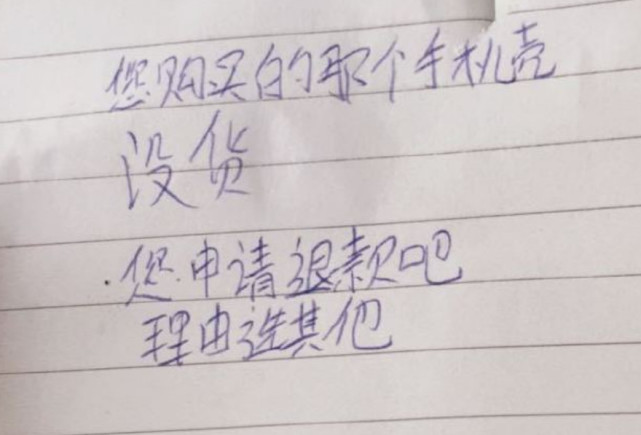 您购买的那个手机壳
没货
您申请退款吧
理由选其他